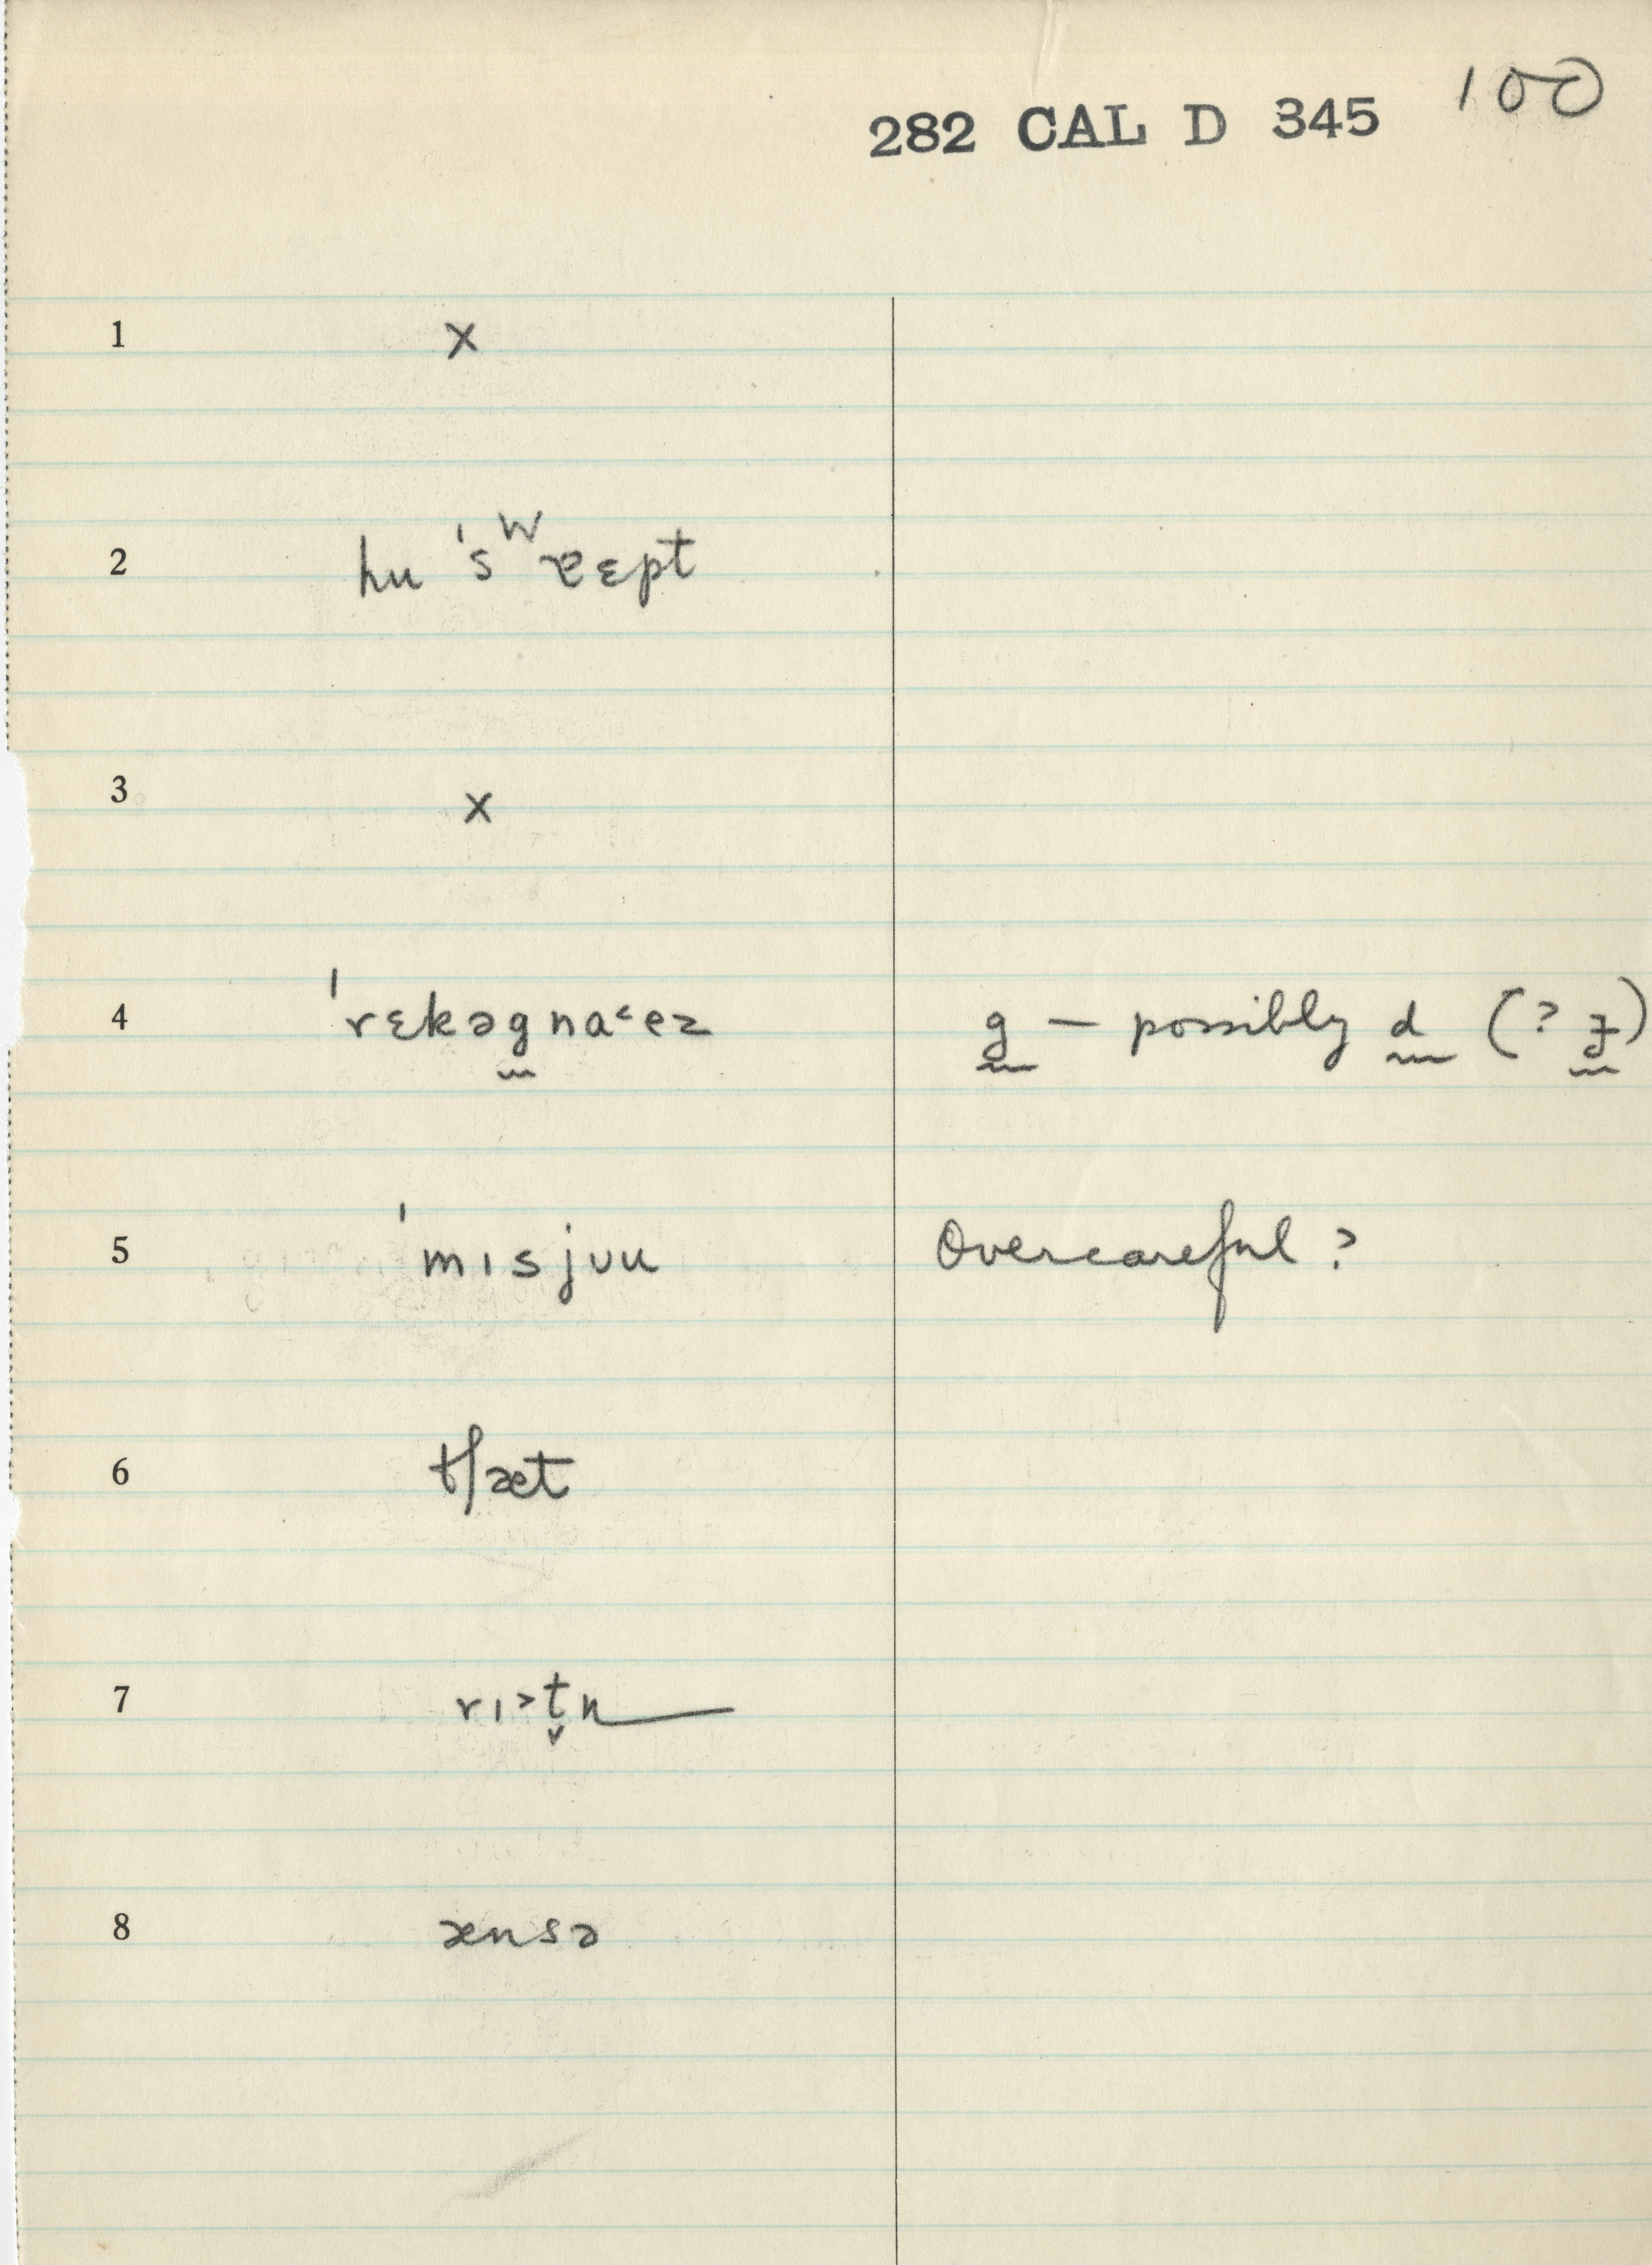 282 CAL D 345 100
1 x
2 hu 'sʷɛpt
3 x
4 'rɛkəgna˂ez g — possibly d (? ɟ)
5 'mɪsjʊu Overcareful ?
6 tʃæt
7 rɪ˃t̬n
8 ænsə